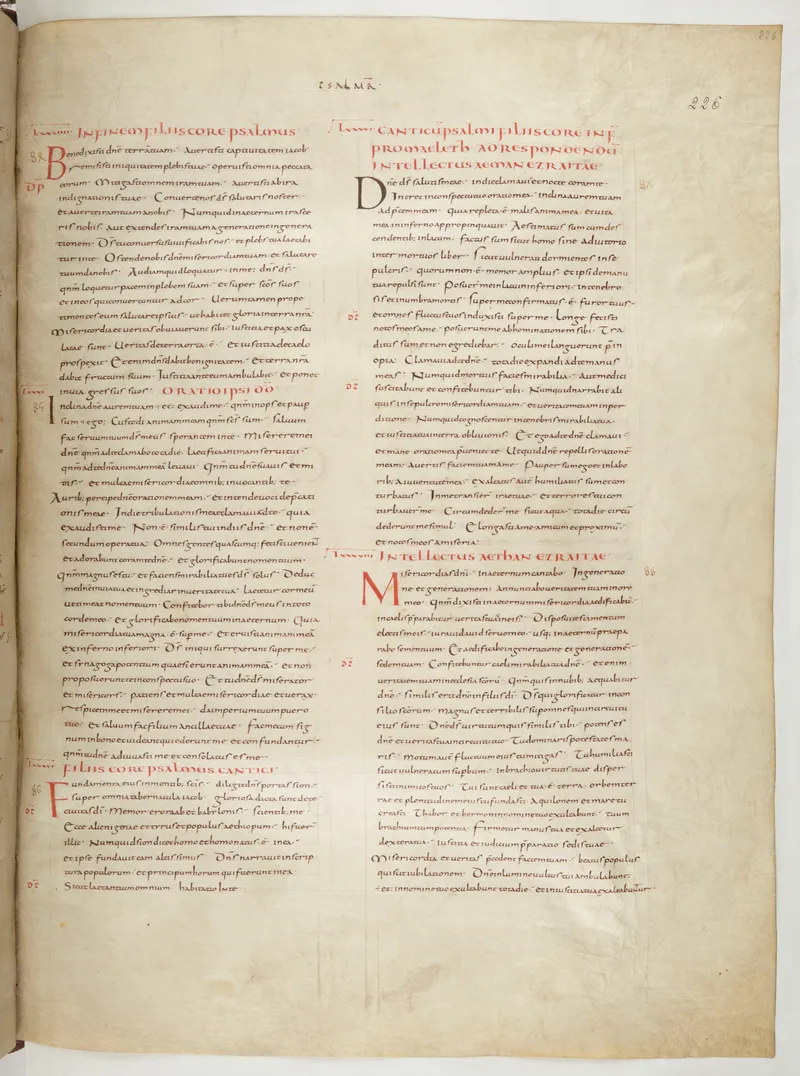 PSALMꝚ
226
IN FINEM FILIIS CORE PSALMUS
84
Benedixisti dne terram tuam· Auertisti captiuitatem iacob·
Remisisti iniquitatem plebis tuae· operuisti omnia peccata
eorum· Mitigasti omnem iram tuam· Auertisti ab ira
indignationis tuae· Conuerte nos ds salutaris noster·
et auerte iram tuam a nobis· Numquid in aeternum irasce
ris nobis· Aut extendes iram tuam a generatione in genera
tionem· Ds tu conuersus uiuificabis nos· et plebs tua laetabi
tur in te· Ostende nobis dne misericordiam tuam· et salutare
tuum da nobis· Audiam quid loquatur in me dns ds·
qnm loquetur pacem in plebem suam· et super scos suos
et in eos qui conuertuntur ad cor· Uerumtamen prope
timentes eum salutare ipsius· ut habitet gloria in terra nra·
Misericordia et ueritas obuiauerunt sibi· iustitia et pax oscu
latae sunt· Ueritas de terra orta ·ē· Et iustitia de caelo
prospexit· Etenim dns dabit benignitatem· et terra nra
dabit fructum suum· Iustitia ante eum ambulabit· et ponet
in uia gressus suos· ORATIO IPSI DD
85
Inclina dne aurem tuam et exaudi me· qnm inops et paup
sum ego· Custodi animam meam qnm scs sum· saluum
fac seruum tuum ds meus sperantem in te· Miserere mei
dne qnm ad te clamabo tota die· laetifica animam serui tui·
qnm ad te dne animam meam leuaui· Qnm tu dne suauis et mi
tis· et multae misericordiae omnib; inuocantib; te·
Aurib; percipe dne orationem meam· et intende uoci depcati
onis meae· In die tribulationis meae clamaui ad te· quia
exaudisti me· Non ·ē· similis tui in diis dne· et non ē
secundum opera tua· Omnes gentes quascumq; fecisti uenient
et adorabunt coram te dne· et glorificabunt nomen tuum·
Qnm magnus es tu· et faciens mirabilia tu es ds solus· Deduc
me dne in uia tua et ingrediar in ueritate tua· laetetur cor meū
ut timeat nomen tuum· Confitebor tibi dne ds meus in toto
corde meo· et glorificabo nomen tuum in aeternum· Quia
misericordia tua magna ·ē· sup me· Et eruisti animam meā
ex inferno inferiori· Ds iniqui surrexerunt super me·
et synagoga potentium quaesierunt animam meā· et non
proposuerunt te in conspectu suo· Et tu dne ds miserator
et misericors· patiens et multae misericordiae et uerax·
Respice in me et miserere mei· da imperium tuum puero
tuo· et saluum fac filium ancillae tuae· Fac mecum sig
num in bono et uideant qui oderunt me et confundantur·
qnm tu dne adiuuasti me et consolatus es me·
FILIIS CORE PSALMUS CANTICI
86
Fundamenta eius in montib; scis· diligit dns portas sion·
super omnia tabernacula iacob· Gloriosa dicta sunt de te
ciuitas di· Memor ero raab et babylonis· scientib; me·
Ecce alienigenae et tyrus et populus aethiopum· hi fuerunt
illic· Numquid sion dicet homo et homo natus ·ē· in ea·
et ipse fundauit eam altissimus· Dns narrauit in scrip
tura populorum· et principum horum qui fuerunt in ea·
Sicut laetantium omnium habitatio in te·
CANTICŪ PSALMI FILIIS CORE IN F
PRO MAELETH AD RESPONDENDŪ
INTELLECTUS AEMAN EZRAITAE·
87
Dne ds salutis meae· in die clamaui et nocte coram te·
Intret in conspectu tuo oratio mea· inclina aurem tuam
ad pcem meam· Quia repleta ·ē· malis anima mea· et uita
mea in inferno appropinquauit· Aestimatus sum cum des
cendentib; in lacum· factus sum sicut homo sine adiutorio
inter mortuos liber· Sicut uulnerati dormientes in se
pulcris· quorum non ·ē· memor amplius· et ipsi de manu
tua repulsi sunt· Posuer me in lacu inferiori· in tenebro
sis et in umbra mortis· super me confirmatus ·ē· furor tuus·
et omnes fluctus tuos induxisti super me· Longe fecisti
notos meos a me· posuerunt me abhominationem sibi· Tra
ditus sum et non egrediebar· oculi mei languerunt p̄ in
opia· Clamaui ad te dne· tota die expandi ad te manus
meas· Numquid mortuis facies mirabilia· Aut medici
suscitabunt et confitebuntur tibi· Numquid narrabit ali
quis in sepulcro misericordiam tuam· et ueritatem tuam in per
ditione· Numquid cognoscentur in tenebris mirabilia tua·
et iustitia tua in terra obliuionis· Et ego ad te dne clamaui·
et mane oratio mea pueniet te· Ut quid dne repellis orationē
meam· Auertis faciem tuam a me· Pauper sum ego et in labo
rib; a iuuentute mea· exaltatus aut humiliatus sum et con
turbatus· In me transier irae tuae· et terrores tui con
turbauer me· Circumdeder me sicut aqua· tota die circū
dederunt me simul· Elongasti a me amicum et proximū·
et notos meos a miseria·
INTELLECTUS AETHAN EZRAITAE
88
Misericordias dni· in aeternum cantabo· In generatio
ne et generationem· Annuntiabo ueritatem tuam in ore
meo· Qnm dixisti in aeternum misericordia aedificabit·
in caelis pparabitur ueritas tua in eis· Disposui testamentum
electis meis· iuraui dauid seruo meo· usq; in aeternū praepa
rabo semen tuum· Et aedificabo in generatione et generationē·
sedem tuam· Confitebuntur caeli mirabilia tua dne· etenim
ueritatem tuam in ecclesia scorū· Qnm quis in nubib; aequabitur
dno· similis erit dno in filiis di· Ds qui glorificatur in con
silio scorum· magnus et terribilis sup omnes qui in circuitu
eius sunt· Dne ds uirtutum quis similis tibi· potens es
dne et ueritas tua in circuitu tuo· Tu dominaris potestati ma
ris· motum aut fluctuum eius tu mitigas· Tu humiliasti
sicut uulneratum supbum· in brachio uirtutis tuae disper
sisti inimicos tuos· Tui sunt caeli et tua ·ē· terra· orbem ter
rae et plenitudinem eius tu fundasti· Aquilonem et mare tu
creasti· Thabor et hermon in nomine tuo exultabunt· tuum
brachium cum potentia· Firmetur manus tua et exaltetur
dextera tua· iustitia et iudicium pparatio sedis tuae·
Misericordia et ueritas pcedent faciem tuam· beatus populus
qui scit iubilationem· Dne in lumine uultus tui ambulabunt·
et in nomine tuo exultabunt tota die· et in iustitia tua exaltabuntur·